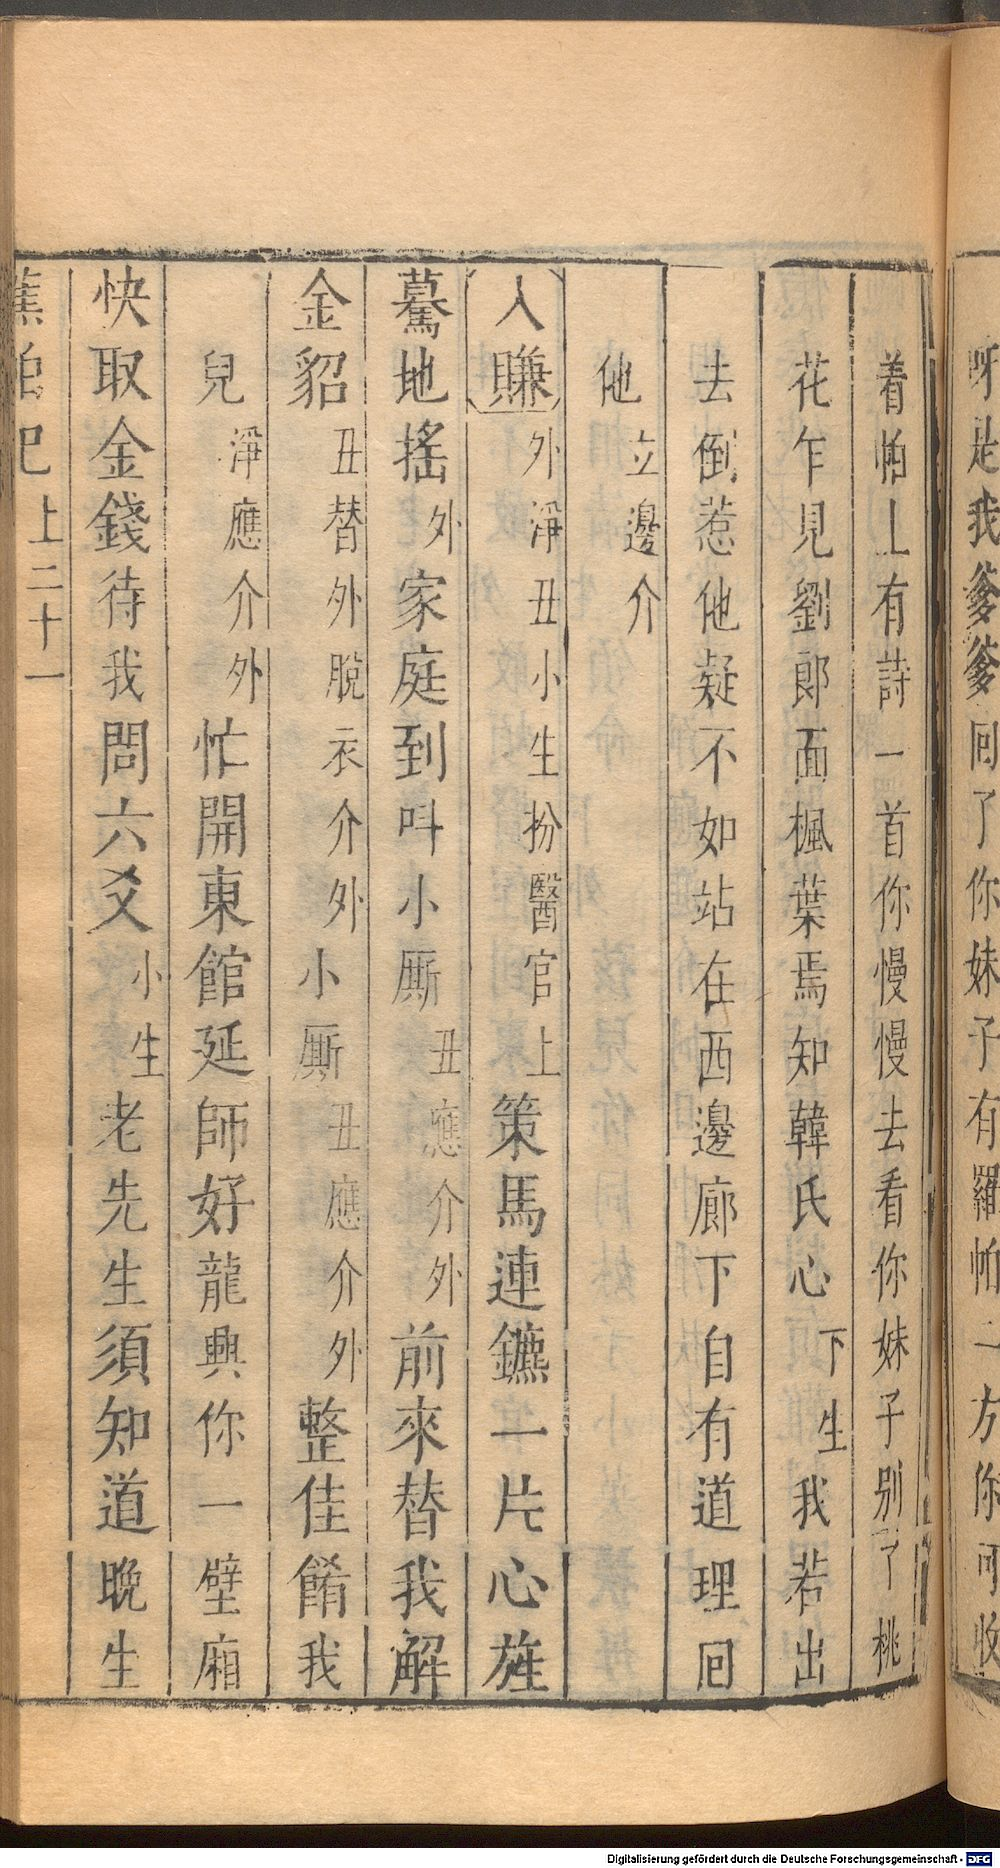 呀是我爹爹回了你妹子有羅帕二方你可收
着怕上有詩一首你慢慢去看你妹子别了桃
花乍見劉郎面楓葉焉知韓氏心下生我若出
去倒惹他疑不如站在西邊廊下自有道理回
他立邊介
入賺外淨丑小生扮醫官上策馬連鑣一片心旌
驀地搖外家庭到呌小厮丑應介外前來替我解
金貂丑替外脫衣介外小厮丑應介外整佳餚我
兒淨應介外忙開東館延師好龍興你一壁廂
快取金錢待我問六爻小生老先生須知道晚生
蕉帕記上二十一
Digitalisierung gefördert durch die Deutsche Forschungsgemeinschaft - DFG